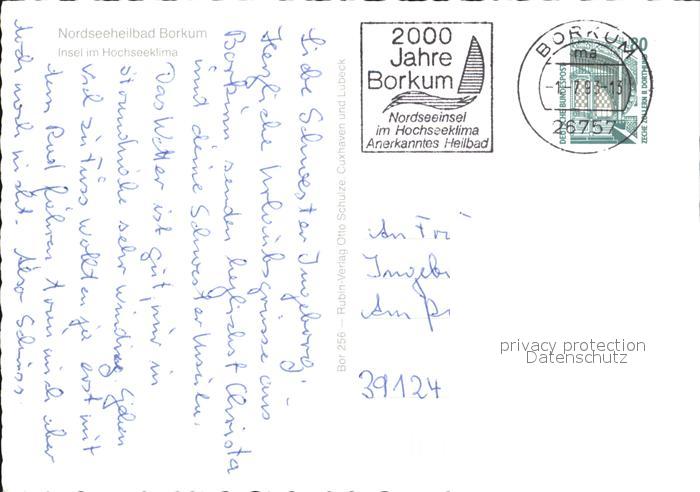 Nordseeheilbad Borkum
Insel im Hochseeklima
Liebe Schwester Ingeborg! –
Herzliche Urlaubsgrüsse aus
Borkum senden herzlichst Christa
und deine Schwester Ursula.
Das Wetter ist gut, nur in
Strandnähe sehr windig. Gehen
viel zu Fuss wollten ja erst mit
dem Rad fahren traun mich aber
doch noch nicht. Also Schüss.
Bor 256 — Rubin-Verlag Otto Schulze Cuxhaven und Lübeck
2000
Jahre
Borkum
Nordseeinsel
im Hochseeklima
Anerkanntes Heilbad
BORKUM
ma
26757
80
DEUTSCHE BUNDESPOST
ZECHE ZOLLERN II, DORTMUND
An
Ingeb
Am
39124
privacy protection
Datenschutz